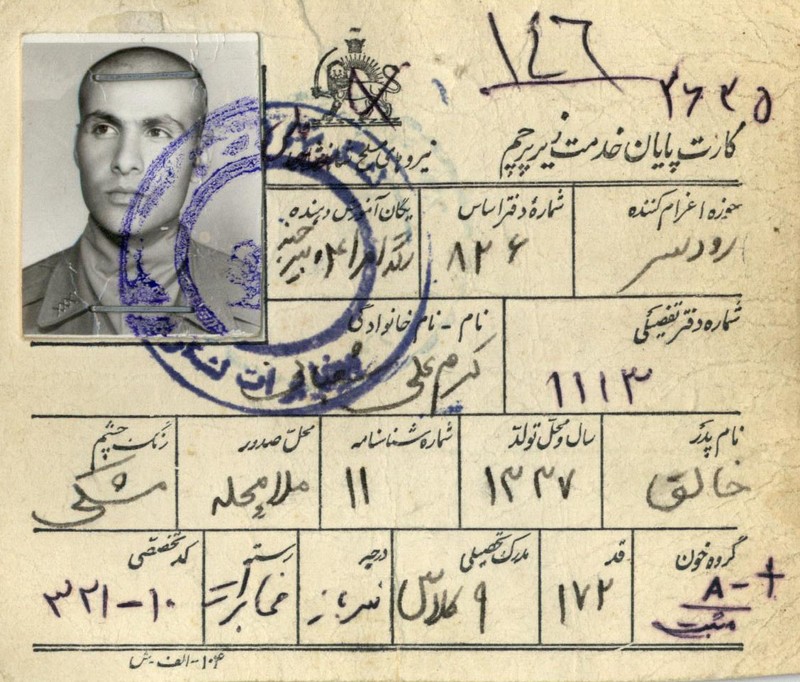 ۱۴۶
۳۶۳۵
کارت پایان خدمت زیر پرچم
نیروهای مسلح
حوزه اعزام کننده
رودسر
شماره دفتر اساس
۸۲۶
یگان آموزش دهنده
شماره دفتر تفصیلی
۱۱۱۳
نام - نام خانوادگی
کرم علی شعبانی
نام پدر
خالق
سال و محل تولد
۱۳۳۷
شماره شناسنامه
۱۱
محل صدور
ملامحله
رنگ چشم
مشکی
گروه خون
A-+
مثبت
قد
۱۷۲
مدرک تحصیلی
۹ کلاس
درجه
سرباز
رسته
مخابرات
کد تخصصی
۳۲۱-۱۰
۱۰۴-الف-ش